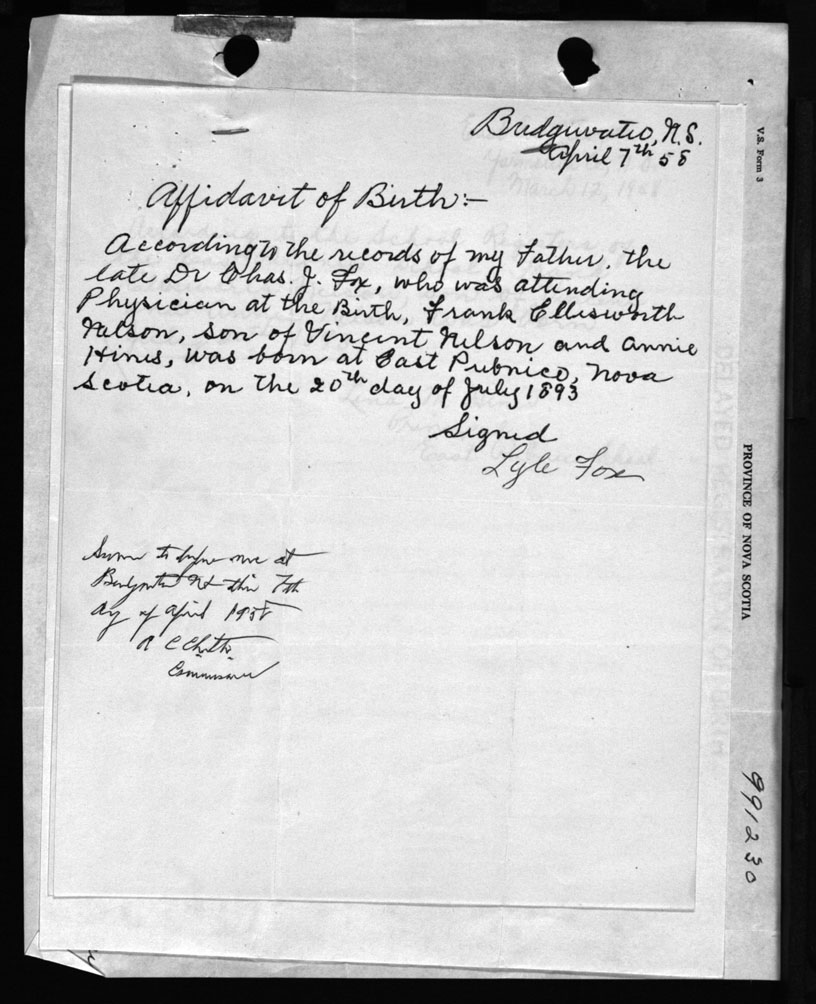 Bridgewater, N.S.
April 7th 58
Affidavit of Birth:-
According to the records of my Father, the
late Dr Chas. J. Fox, who was attending
Physician at the Birth, Frank Ellisworth
Nelson, son of Vincent Nelson and Annie
Hines, was born at East Pubnico, Nova
Scotia, on the 20th day of July 1893
Signed
Lyle Fox
Sworn to before me at
Bridgewater NS this 7th
day of April 1958
Commissioner
V.S. Form 3
PROVINCE OF NOVA SCOTIA
DELAYED REGISTRATION OF BIRTH
991230